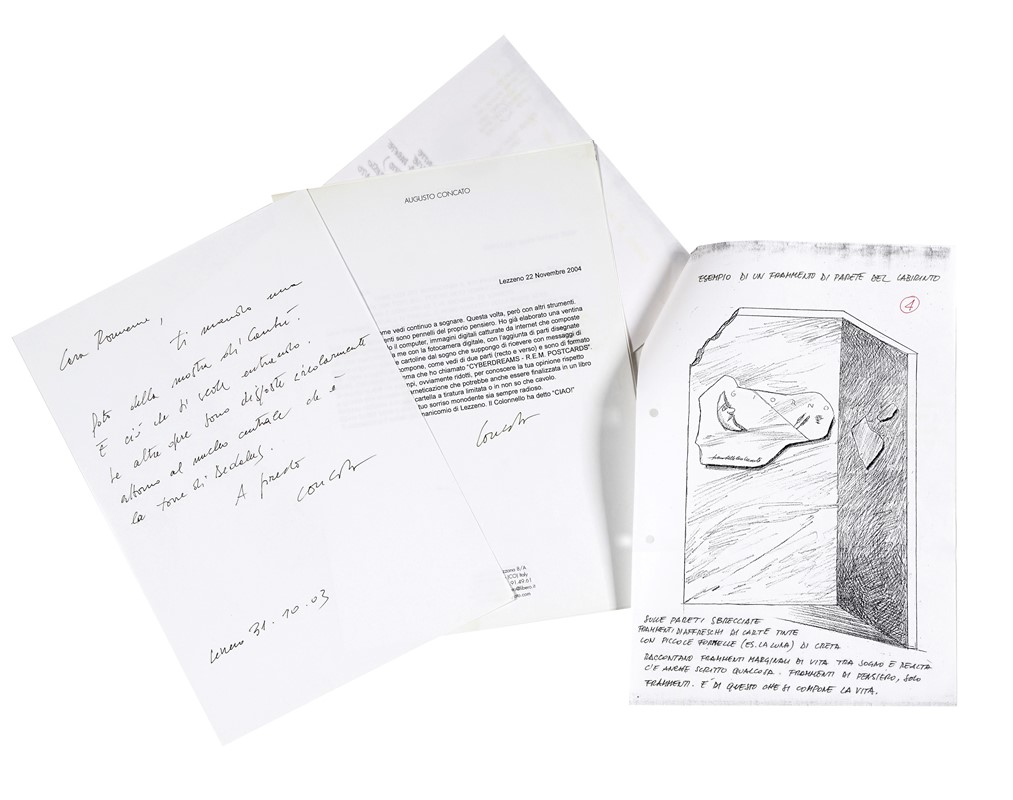 Cara Romana,
ti mando una
foto della mostra di Cantù.
È ciò che si vede entrando.
Le altre opere sono disposte circolarmente
attorno al nucleo centrale che è
la torre di Dedalus.
A presto
Concato
Lezzeno 31.10.03
AUGUSTO CONCATO
Lezzeno 22 Novembre 2004
me vedi continuo a sognare. Questa volta, però con altri strumenti.
enti sono pennelli del proprio pensiero. Ho già elaborato una ventina
o il computer, immagini digitali catturate da internet che composte
a me con la fotocamera digitale, con l'aggiunta di parti disegnate
e cartoline dal sogno che suppongo di ricevere con messaggi di
ompone, come vedi di due parti (recto e verso) e sono di formato
mma che ho chiamato "CYBERDREAMS - R.E.M. POSTCARDS".
mpi, ovviamente ridotti, per conoscere la tua opinione rispetto
arneticazione che potrebbe anche essere finalizzata in un libro
cartella a tiratura limitata o in non so che cavolo.
tuo sorriso monodente sia sempre radioso.
manicomio di Lezzeno. Il Colonnello ha detto "CIAO!"
Concato
zzona 8/A
(CO) Italy
91.49.61
@libero.it
.com
ESEMPIO DI UN FRAMMENTO DI PARETE DEL LABIRINTO
4
GIORNO
SULLE PARETI SBRECCIATE
FRAMMENTI DI AFFRESCHI DI CARTE TINTE
CON PICCOLE FORMELLE (ES. LA LUNA) DI CRETA
RACCONTANO FRAMMENTI MARGINALI DI VITA TRA SOGNO E REALTÀ
C'È ANCHE SCRITTO QUALCOSA. FRAMMENTI DI PENSIERO, SOLO
FRAMMENTI. È DI QUESTO CHE SI COMPONE LA VITA.